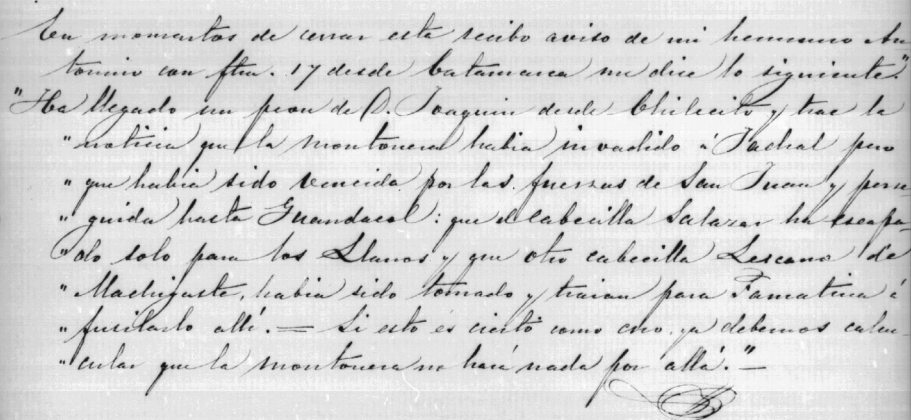 En momentos de cerrar esta recibo aviso de mi hermano An-
tonino con fha. 17 desde Catamarca me dice lo siguiente"
"Ha llegado un peon de D. Joaquin desde Chilecito y trae la
"noticia que la montonera habia invadido á Jachal pero
"que habia sido vencida por las fuerzas de San Juan y perse
"guida hasta Guandacol: que el cabecilla Salazar ha escapa-
"do solo para los Llanos y que otro cabecilla Lescano de
"Machigasta, habia sido tomado y traian para Famatina á
"fusilarlo allí. — Si esto es cierto como creo, ya debemos calcu-
"cular que la montonera no hará nada por allá." —